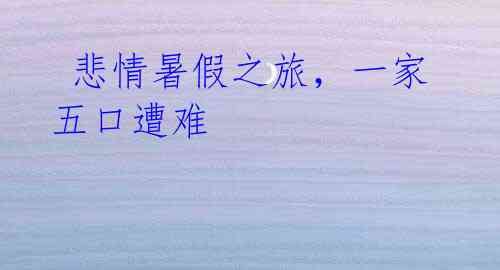 悲情暑假之旅，一家
五口遭难